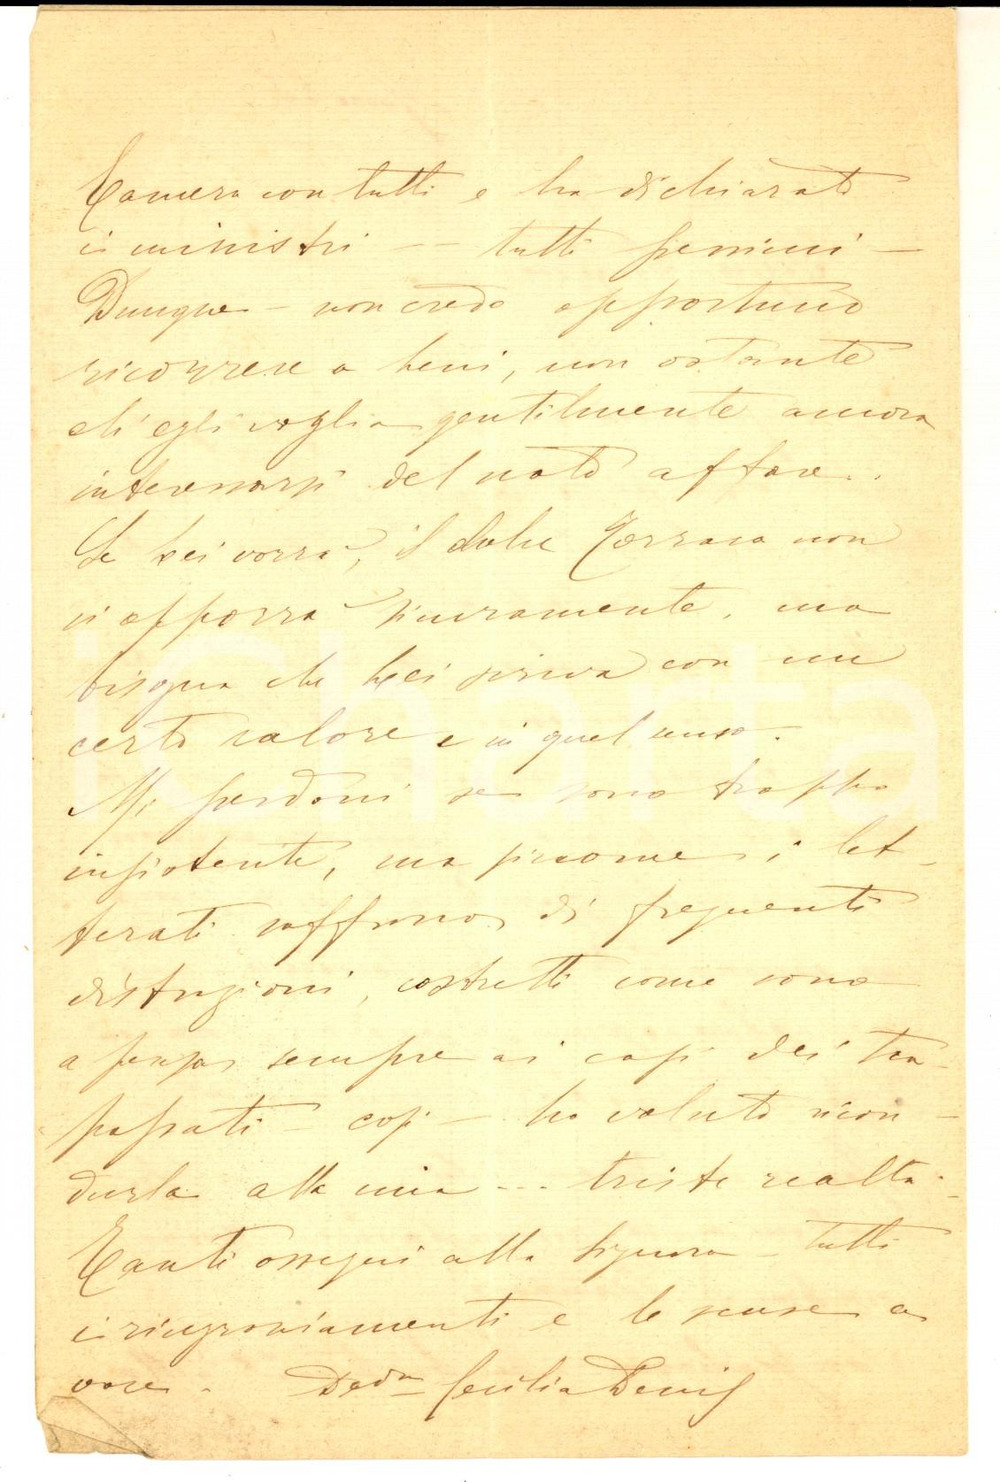 Camera con tutti e ha dichiarato
i ministri — — tutti pessimi —
Dunque — non credo opportuno
ricorrere a Lui, non ostante
ch'egli voglia gentilmente ancora
interessarsi del noto affare..
Se Lei vorrà, il dolce Ferraro non
si opporrà sicuramente, ma
bisogna che Lei scriva con un
certo calore e in quel senso.
Mi perdoni se sono troppo
insistente, ma siccome i let-
terati soffrono di frequenti
distrazioni, costretti come sono
a pensar sempre ai casi dei tra-
passati così — ho voluto ricon-
durla alla mia ... triste realtà.
Tanti ossequi alla Signora — tutti
i ringraziamenti e le scuse a
Dedma Cecilia Denis